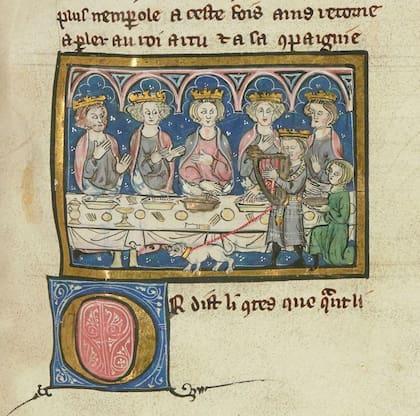 plus nemparole a ceste fois ains retorne
a ꝑler au roi artu ⁊ a sa ꝯpaignie
OR dist li ꝯtes que qᵃnt li